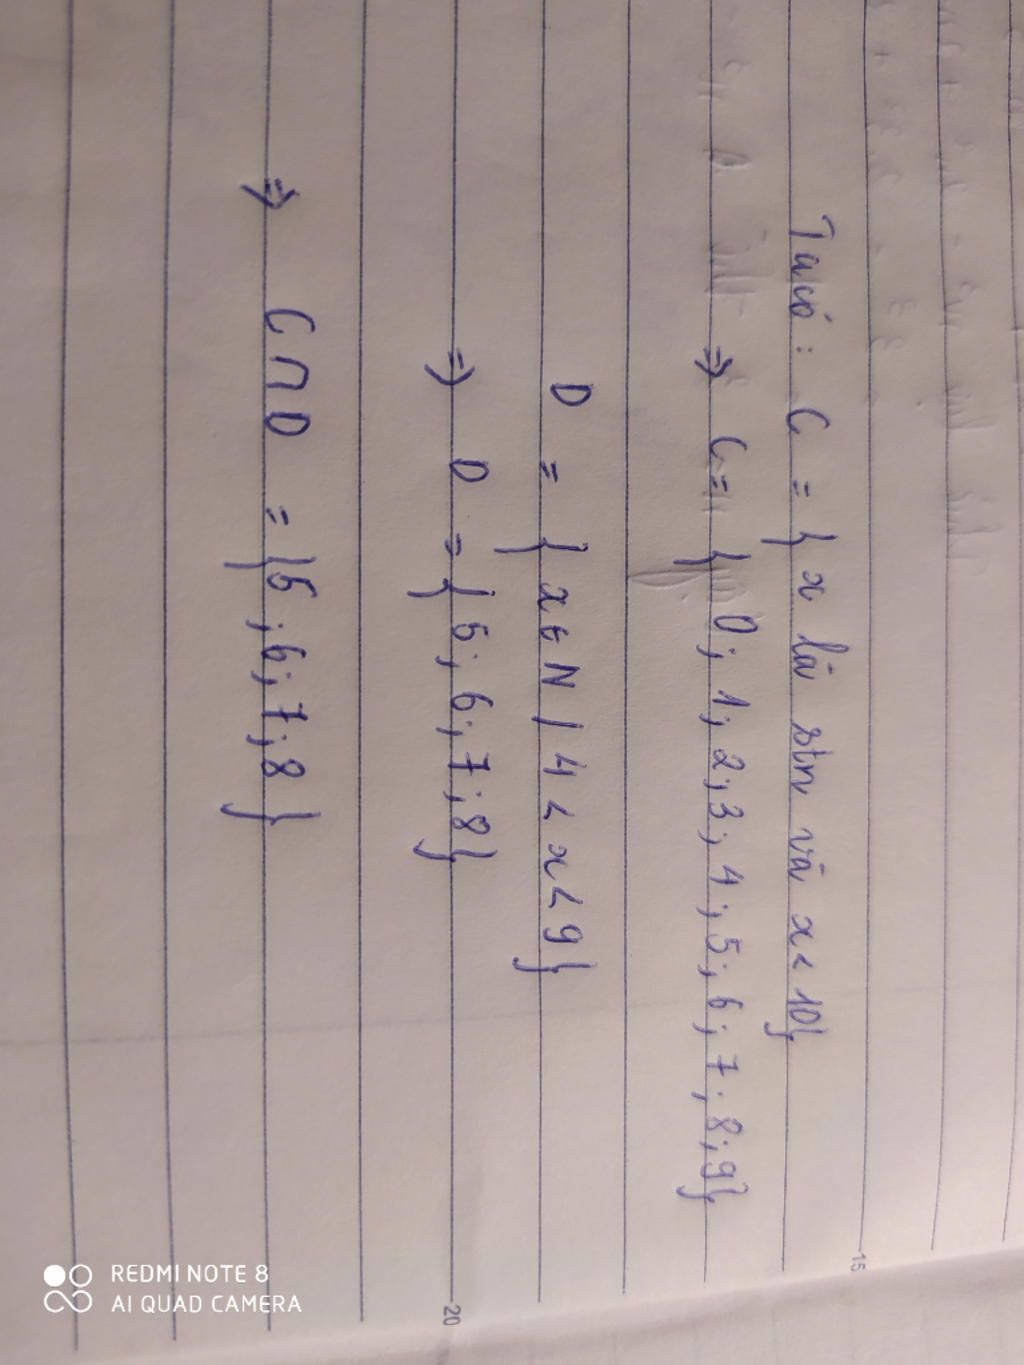 Ta có : C = { x là stn và x < 10}
⇒ C = { 0; 1; 2; 3; 4; 5; 6; 7; 8; 9}
D = { x ∈ N / 4 < x < 9}
⇒ D = { 5; 6; 7; 8}
⇒ C ∩ D = {5; 6; 7; 8}
15
20
REDMI NOTE 8
AI QUAD CAMERA